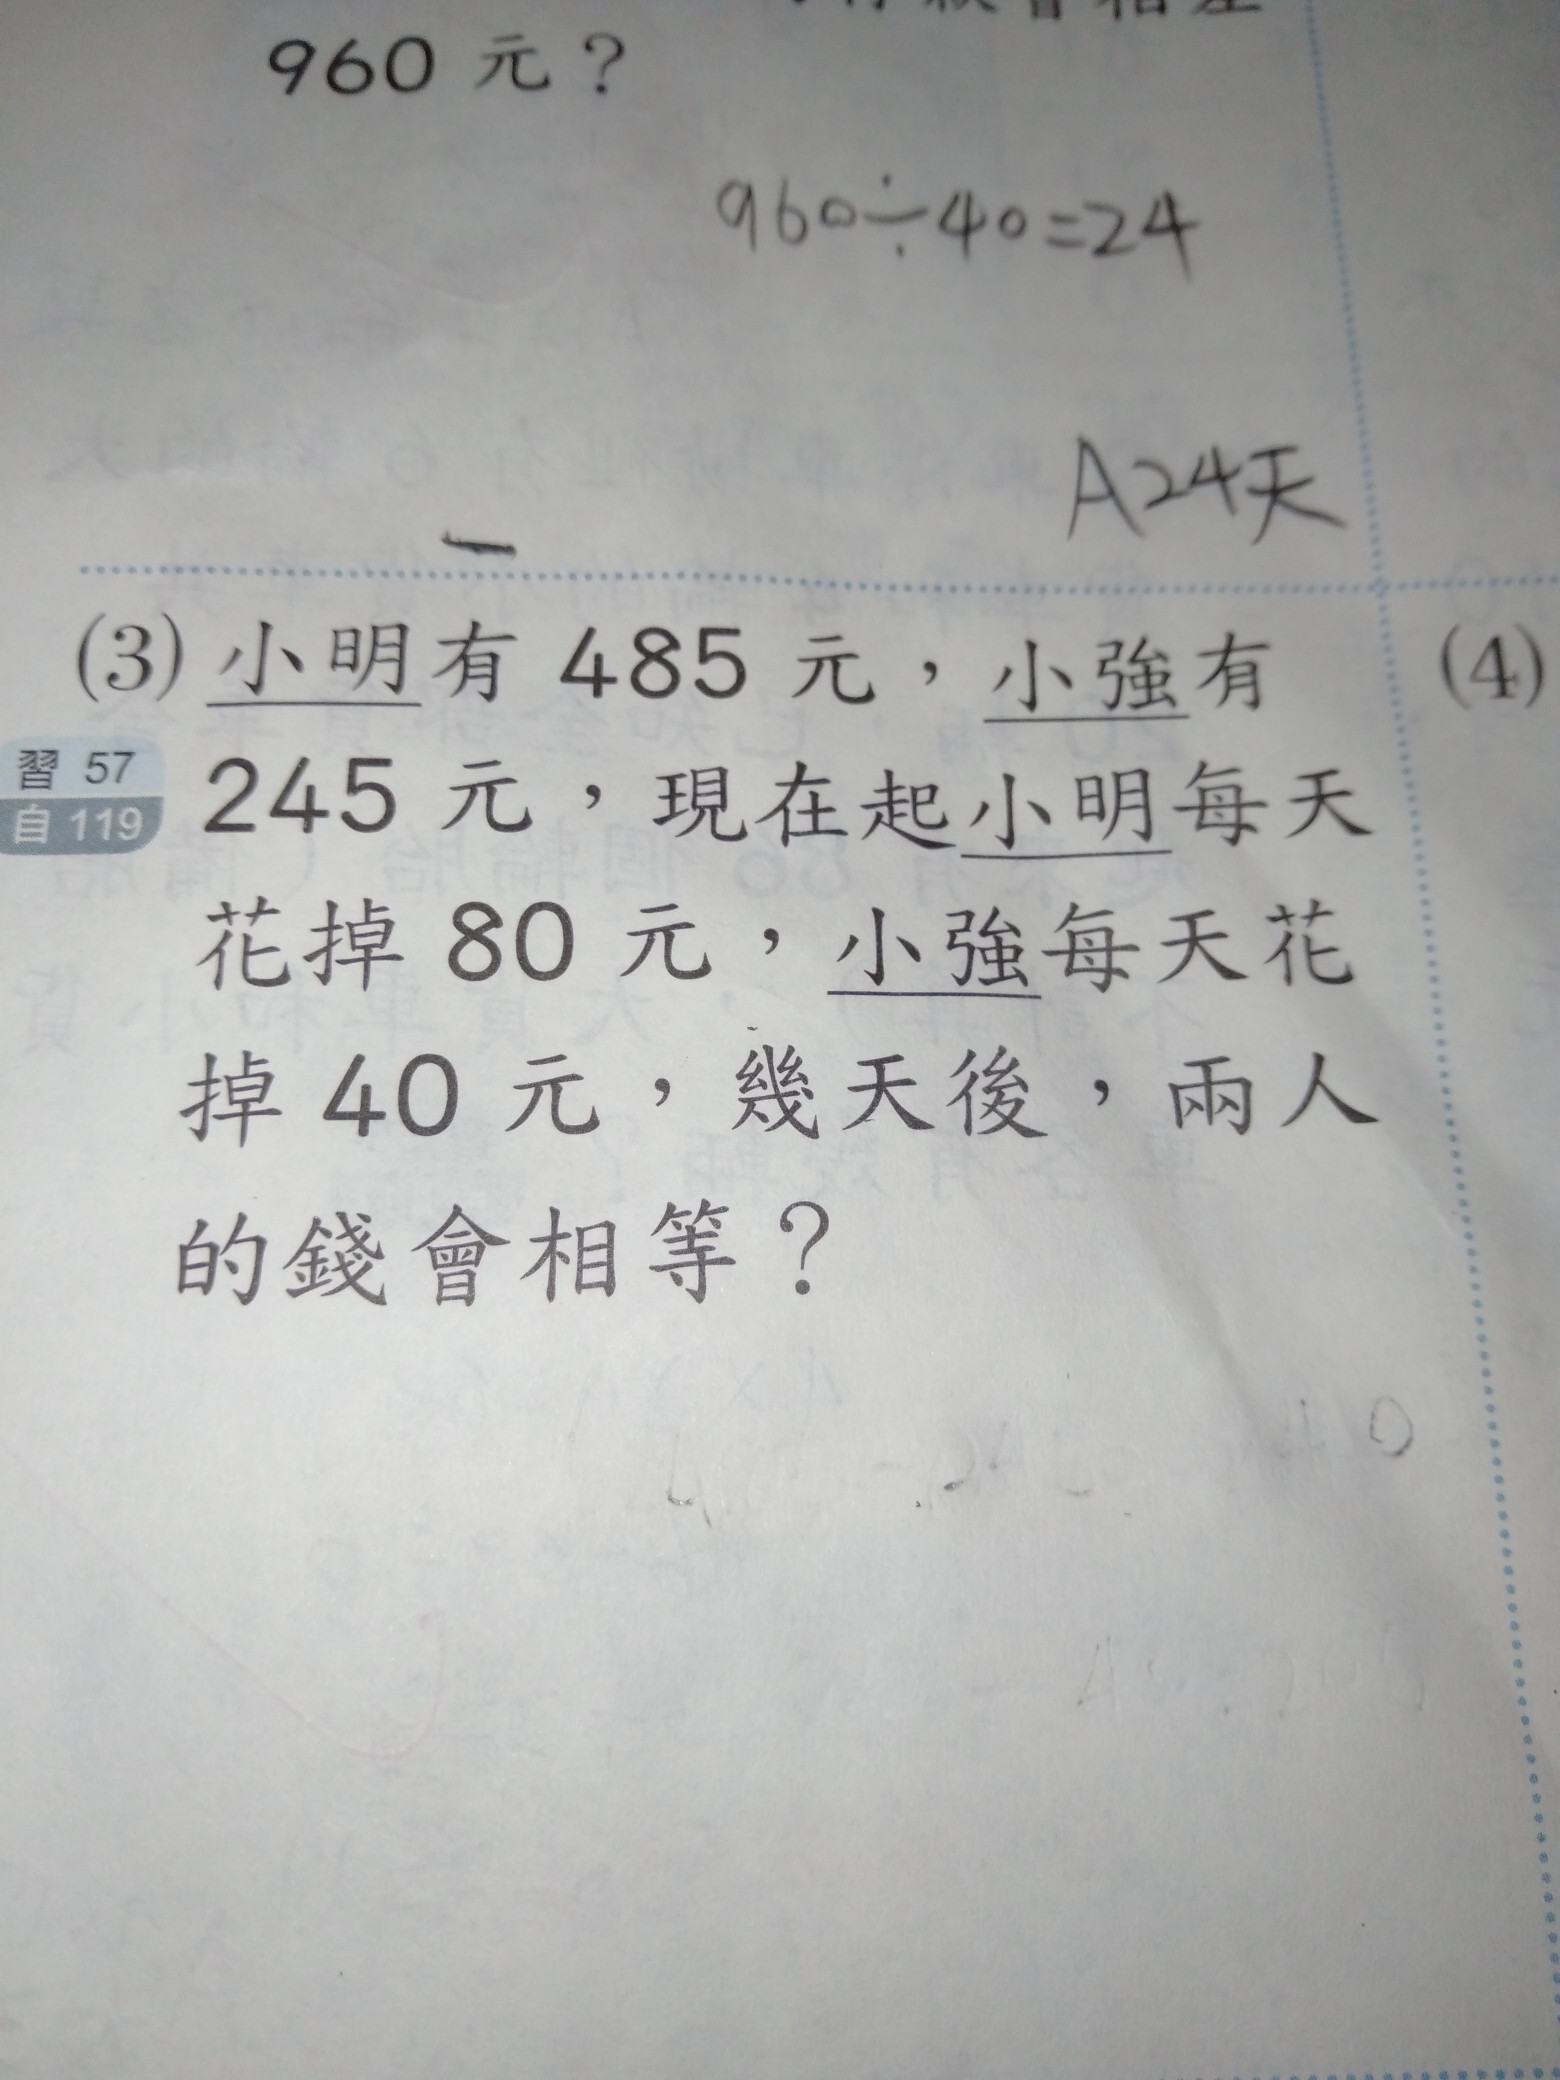 960 元？
960÷40=24
A24天
(3) 小明有 485 元，小強有
(4)
習 57
自 119
245 元，現在起小明每天
花掉 80 元，小強每天花
掉 40 元，幾天後，兩人
的錢會相等？